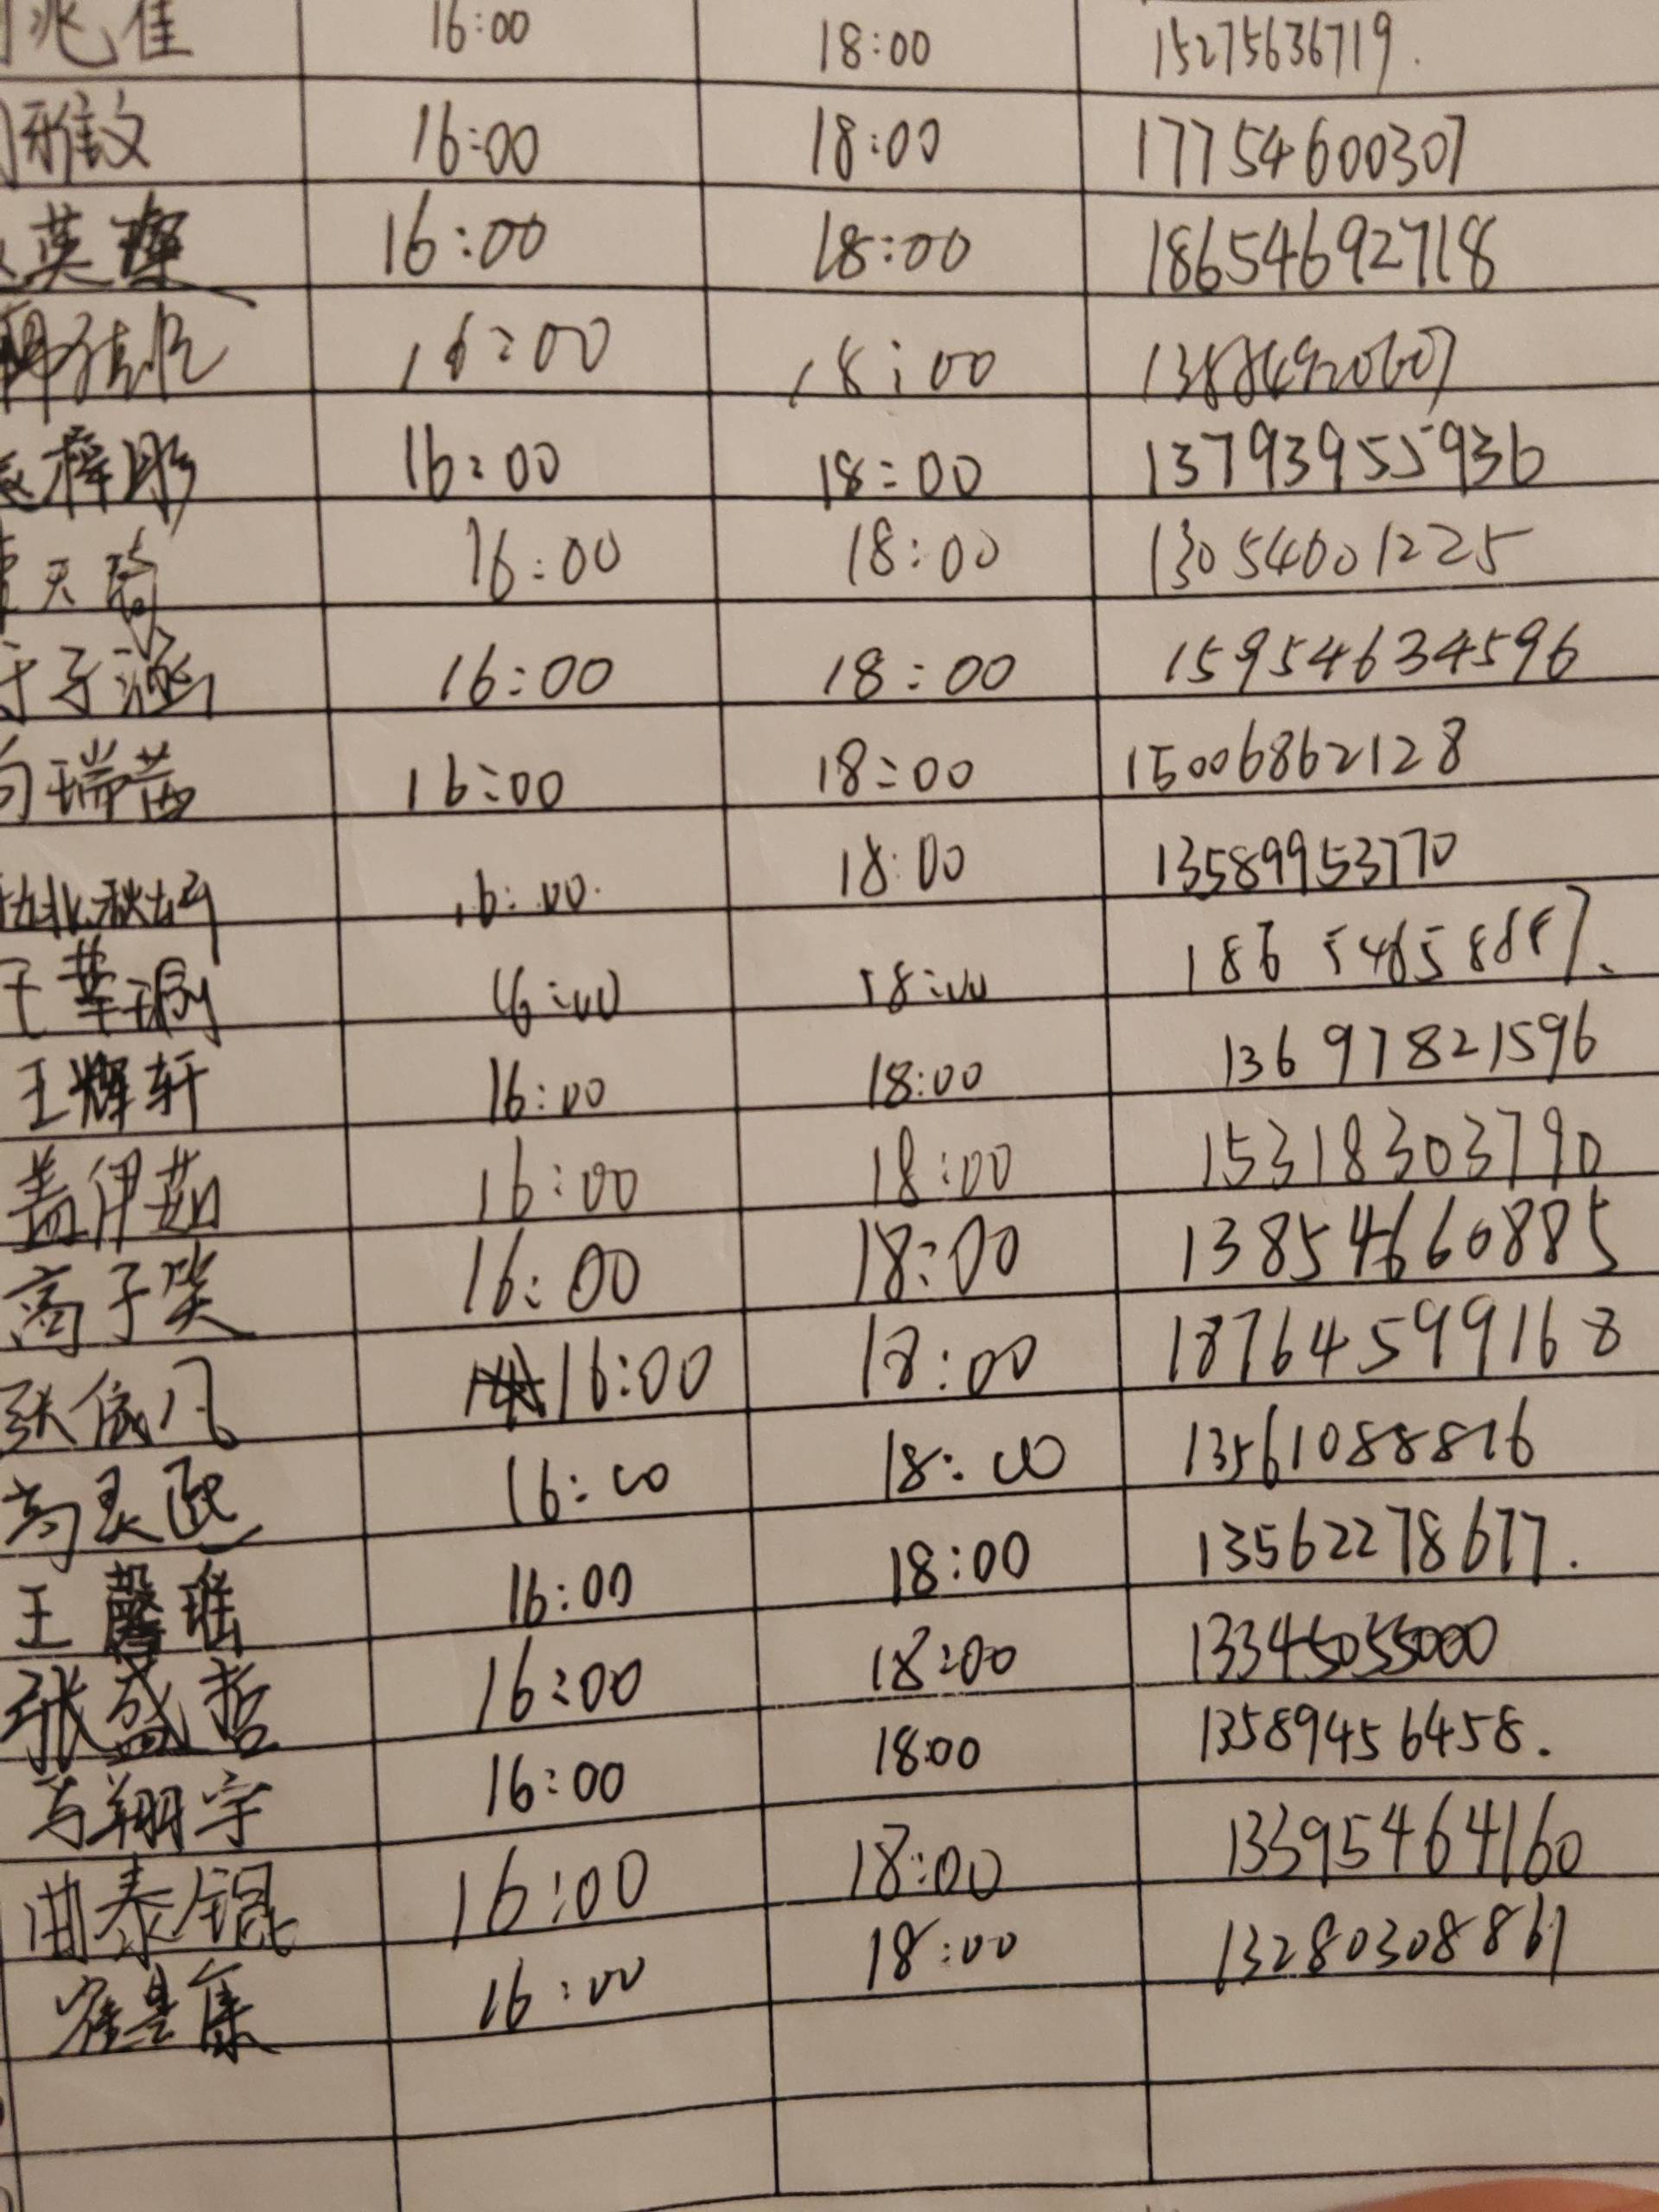 兆佳 16:00 18:00 15275636719.
雅文 16:00 18:00 17754600307
英 16:00 18:00 18654692718
16:00 18:00
梓彤 16:00 18:00 13793955936
天琦 16:00 18:00 13054001225
于子涵 16:00 18:00 15954634596
瑞茜 16:00 18:00 15006862128
16:00. 18:00 13589953770
王 16:00 18:00
王辉轩 16:00 18:00 13697821596
盖伊茹 16:00 18:00 15318303790
高子笑 16:00 18:00 13854660885
张依凡 16:00 18:00 18764599168
16:00 18:00 13561088816
王馨瑶 16:00 18:00 13562278677.
张盛哲 16:00 18:00 13345055000
马翔宇 16:00 18:00 13589456458.
曲泰锟 16:00 18:00 13395464160
16:00 18:00 13280308861